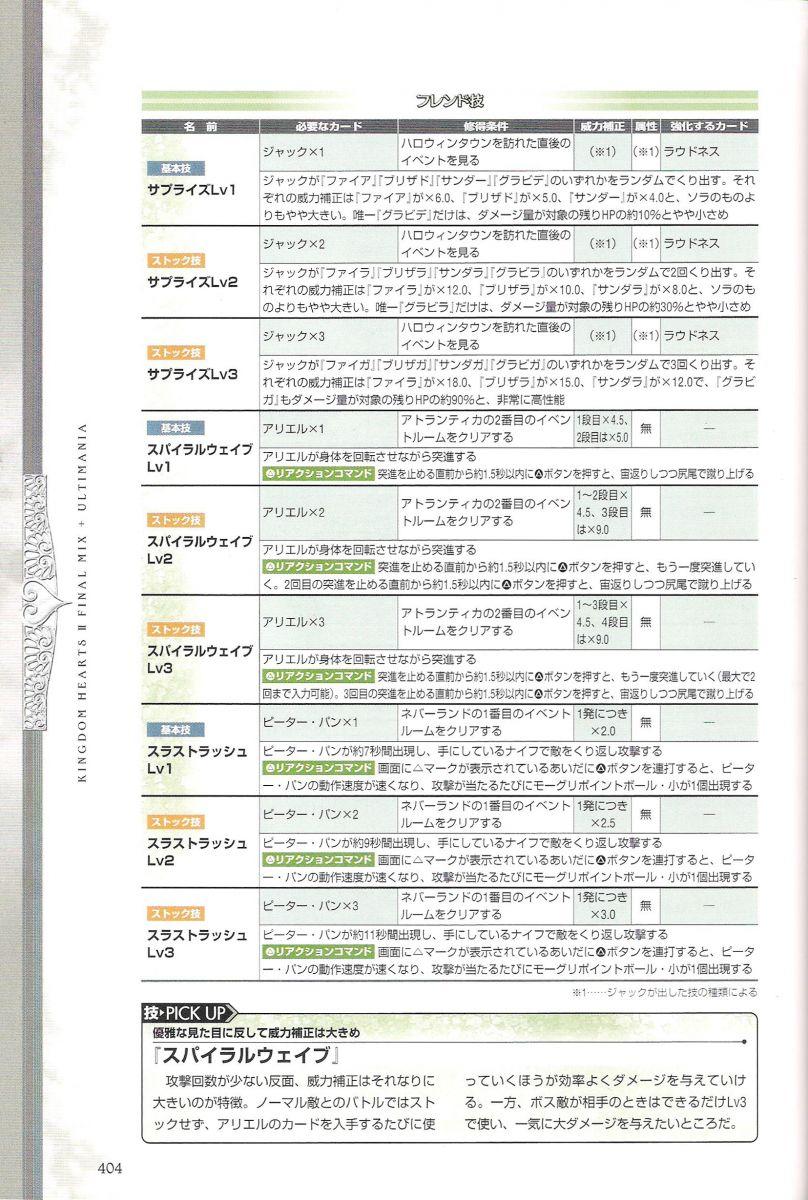 フレンド技
名前 必要なカード 修得条件 威力補正 属性 強化するカード
基本技
サプライズLv1
ジャック×1
ハロウィンタウンを訪れた直後の
イベントを見る
(※1) (※1) ラウドネス
ジャックが『ファイア』『ブリザド』『サンダー』『グラビデ』のいずれかをランダムでくり出す。それ
ぞれの威力補正は『ファイア』が×6.0、『ブリザド』が×5.0、『サンダー』が×4.0と、ソラのもので
よりもやや大きい。唯一『グラビデ』だけは、ダメージ量が対象の残りHPの約10%とやや小さめ
ストック技
サプライズLv2
ジャック×2
ハロウィンタウンを訪れた直後の
イベントを見る
(※1) (※1) ラウドネス
ジャックが『ファイラ』『ブリザラ』『サンダラ』『グラビラ』のいずれかをランダムで2回くり出す。そ
れぞれの威力補正は『ファイラ』が×12.0、『ブリザラ』が×10.0、『サンダラ』が×8.0と、ソラのも
のよりもやや大きい。唯一『グラビラ』だけは、ダメージ量が対象の残りHPの約30%とやや小さめ
ストック技
サプライズLv3
ジャック×3
ハロウィンタウンを訪れた直後の
イベントを見る
(※1) (※1) ラウドネス
ジャックが『ファイガ』『ブリザガ』『サンダガ』『グラビガ』のいずれかをランダムで3回くり出す。そ
れぞれの威力補正は『ファイラ』が×18.0、『ブリザラ』が×15.0、『サンダラ』が×12.0で、『グラビ
ガ』もダメージ量が対象の残りHPの約90%と、非常に高性能
基本技
スパイラルウェイブ
Lv1
アリエル×1
アトランティカの2番目のイベン
トルームをクリアする
1段目×4.5、
2段目は×5.0
無 ―
アリエルが身体を回転させながら突進する
△リアクションコマンド 突進を止める直前から約1.5秒以内に△ボタンを押すと、宙返りしつつ尻尾で蹴り上げる
ストック技
スパイラルウェイブ
Lv2
アリエル×2
アトランティカの2番目のイベン
トルームをクリアする
1〜2段目×
4.5、3段目
は×9.0
無 ―
アリエルが身体を回転させながら突進する
△リアクションコマンド 突進を止める直前から約1.5秒以内に△ボタンを押すと、もう一度突進してい
く。2回目の突進を止める直前から約1.5秒以内に△ボタンを押すと、宙返りしつつ尻尾で蹴り上げる
ストック技
スパイラルウェイブ
Lv3
アリエル×3
アトランティカの2番目のイベン
トルームをクリアする
1〜3段目×
4.5、4段目
は×9.0
無 ―
アリエルが身体を回転させながら突進する
△リアクションコマンド 突進を止める直前から約1.5秒以内に△ボタンを押すと、もう一度突進していく(最大で2
回まで入力可能)。3回目の突進を止める直前から約1.5秒以内に△ボタンを押すと、宙返りしつつ尻尾で蹴り上げる
基本技
スラストラッシュ
Lv1
ピーター・パン×1
ネバーランドの1番目のイベント
ルームをクリアする
1発につき
×2.0
無 ―
ピーター・パンが約7秒間出現し、手にしているナイフで敵をくり返し攻撃する
△リアクションコマンド 画面に△マークが表示されているあいだに△ボタンを連打すると、ピータ
ー・パンの動作速度が速くなり、攻撃が当たるたびにモーグリポイントボール・小が1個出現する
ストック技
スラストラッシュ
Lv2
ピーター・パン×2
ネバーランドの1番目のイベント
ルームをクリアする
1発につき
×2.5
無 ―
ピーター・パンが約9秒間出現し、手にしているナイフで敵をくり返し攻撃する
△リアクションコマンド 画面に△マークが表示されているあいだに△ボタンを連打すると、ピータ
ー・パンの動作速度が速くなり、攻撃が当たるたびにモーグリポイントボール・小が1個出現する
ストック技
スラストラッシュ
Lv3
ピーター・パン×3
ネバーランドの1番目のイベント
ルームをクリアする
1発につき
×3.0
無 ―
ピーター・パンが約11秒間出現し、手にしているナイフで敵をくり返し攻撃する
△リアクションコマンド 画面に△マークが表示されているあいだに△ボタンを連打すると、ピータ
ー・パンの動作速度が速くなり、攻撃が当たるたびにモーグリポイントボール・小が1個出現する
※1……ジャックが出した技の種類による
技▶PICK UP
優雅な見た目に反して威力補正は大きめ
『スパイラルウェイブ』
攻撃回数が少ない反面、威力補正はそれなりに
大きいのが特徴。ノーマル敵とのバトルではスト
ックせず、アリエルのカードを入手するたびに使
っていくほうが効率よくダメージを与えていけ
る。一方、ボス敵が相手のときはできるだけLv3
で使い、一気に大ダメージを与えたいところだ。
KINGDOM HEARTS II FINAL MIX + ULTIMANIA
404